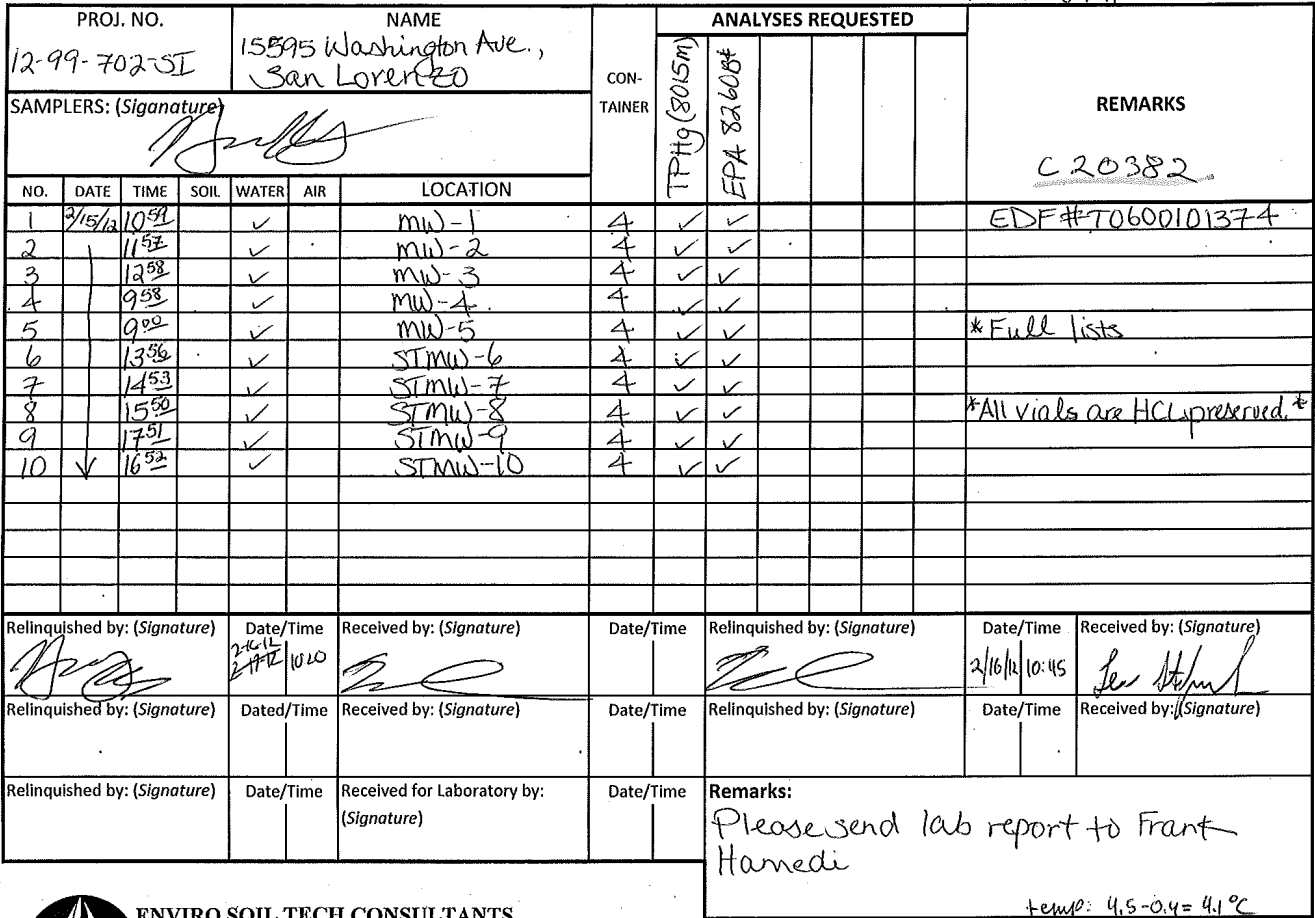 PROJ. NO.
12-99-702-SI
NAME
15595 Washington Ave.,
San Lorenzo
SAMPLERS: (Siganature)
CON-
TAINER
ANALYSES REQUESTED
TPHg (8015m)
EPA 8260B*
REMARKS
C20382
NO. DATE TIME SOIL WATER AIR LOCATION
1 2/15/12 10 59 ✓ MW-1 4 ✓ ✓ EDF#T0600101374
2 11 57 ✓ MW-2 4 ✓ ✓
3 12 58 ✓ MW-3 4 ✓ ✓
4 9 58 ✓ MW-4 4 ✓ ✓
5 9 00 ✓ MW-5 4 ✓ ✓ *Full lists
6 13 56 ✓ STMW-6 4 ✓ ✓
7 14 53 ✓ STMW-7 4 ✓ ✓
8 15 50 ✓ STMW-8 4 ✓ ✓ *All vials are HCL preserved.*
9 17 51 ✓ STMW-9 4 ✓ ✓
10 16 52 ✓ STMW-10 4 ✓ ✓
Relinquished by: (Signature) Date/Time Received by: (Signature) Date/Time Relinquished by: (Signature) Date/Time Received by: (Signature)
2-16-12
1020
2/16/12 10:45
Relinquished by: (Signature) Dated/Time Received by: (Signature) Date/Time Relinquished by: (Signature) Date/Time Received by: (Signature)
Relinquished by: (Signature) Date/Time Received for Laboratory by:
(Signature)
Date/Time
Remarks:
Please send lab report to Frank
Hamedi
temp: 4.5-0.4= 4.1°C
ENVIRO SOIL TECH CONSULTANTS